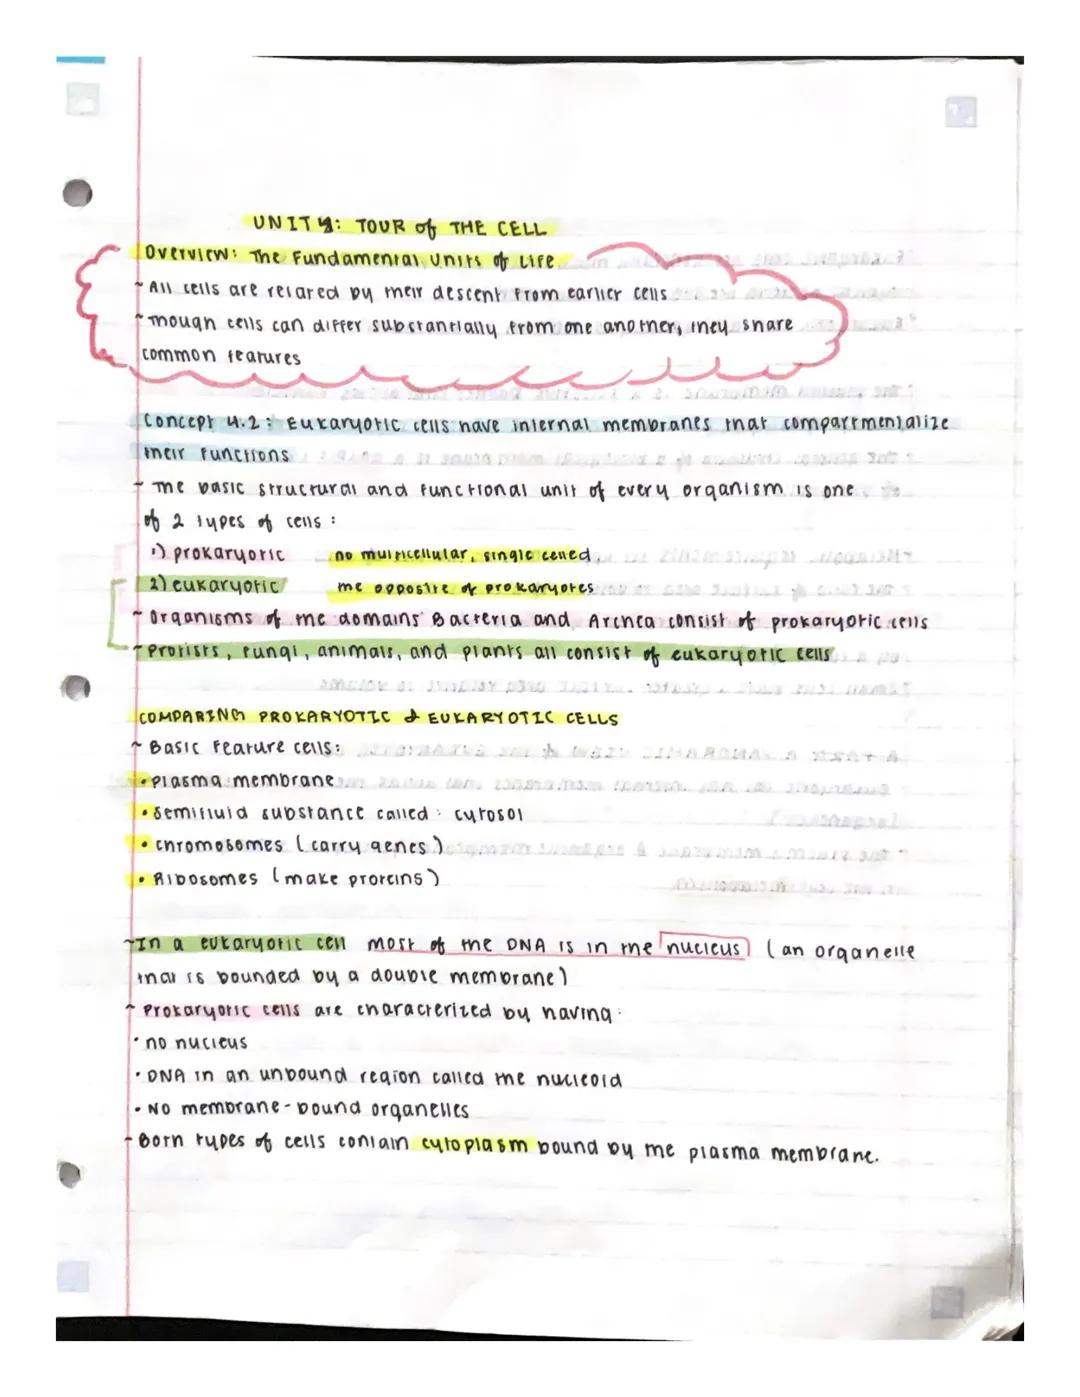 UNIT 4: TOUR of THE CELL
Overview: The Fundamental Units of Life
~ All cells are related by their descent from earlier cells
~ Though cells can differ substantially from one another, they share
common features
Concept 4.2: Eukaryotic cells have internal membranes that compartmentalize
their functions
~ The basic structural and functional unit of every organism is one
of 2 types of cells:
1) prokaryotic no multicellular, single celled
2) eukaryotic the opposite of prokaryotes
~ Organisms of the domains Bacteria and Archea consist of prokaryotic cells
~ Protists, fungi, animals, and plants all consist of eukaryotic cells
COMPARING PROKARYOTIC & EUKARYOTIC CELLS
~ Basic Feature cells:
• Plasma membrane
• Semifluid substance called: cytosol
• chromosomes (carry genes)
• Ribosomes (make proteins)
~ In a eukaryotic cell most of the DNA is in the nucleus (an organelle
that is bounded by a double membrane)
~ Prokaryotic cells are characterized by having:
• no nucleus
• DNA in an unbound region called the nucleoid
• No membrane-bound organelles
~ Both types of cells contain cytoplasm bound by the plasma membrane.